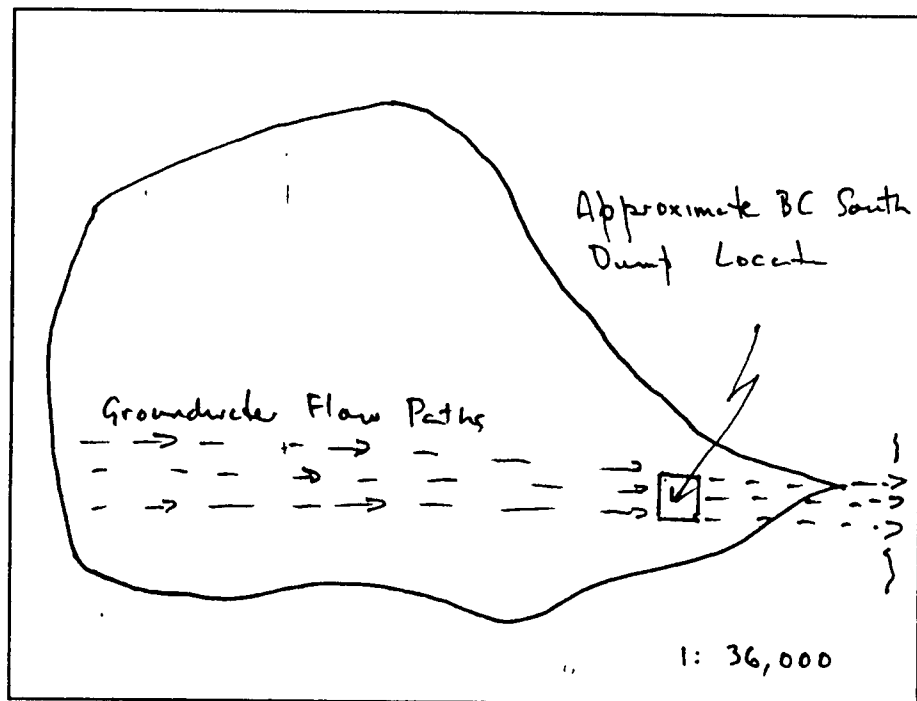 Approximate BC South
Dump Locatn
Groundwater Flow Paths
1: 36,000